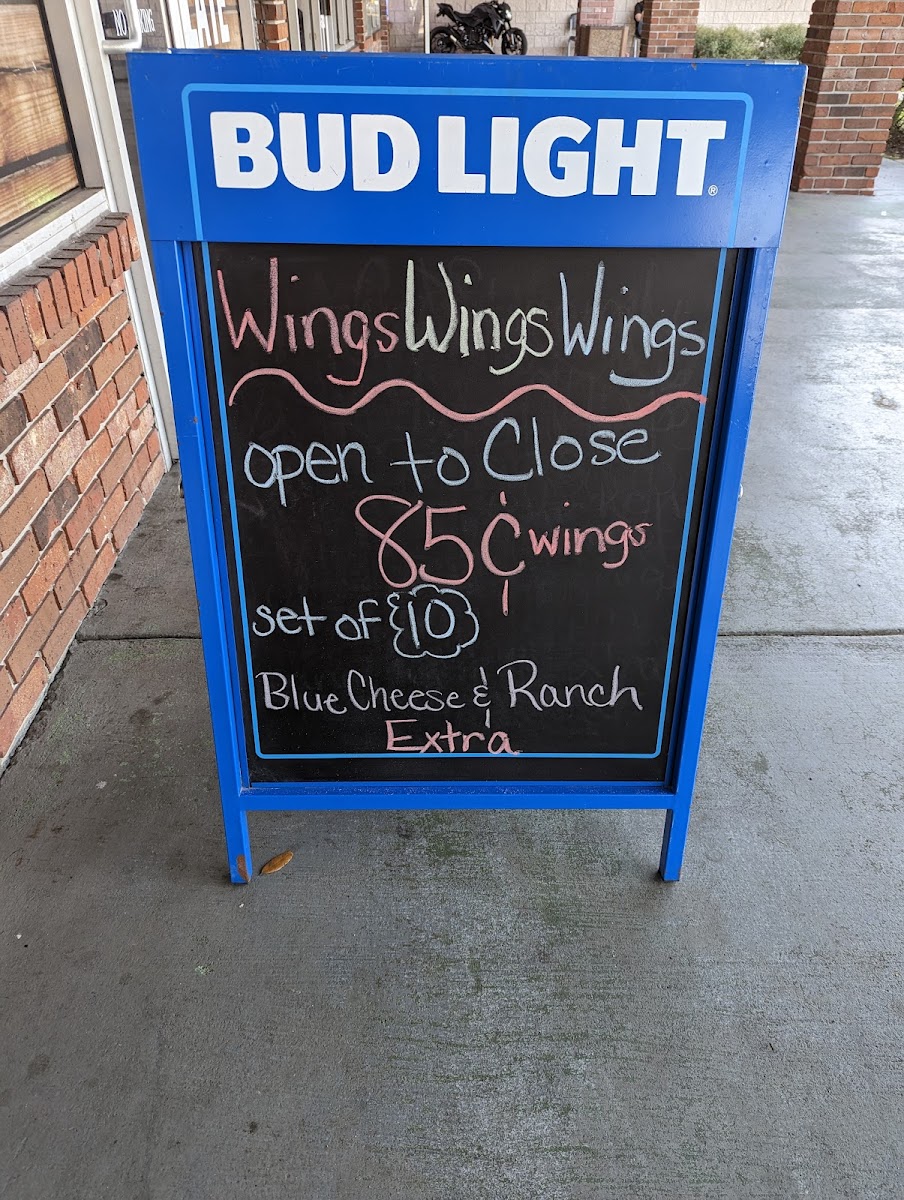 BUD LIGHT®
Wings Wings Wings
open to Close
85¢ wings
set of 10
Blue Cheese & Ranch
Extra